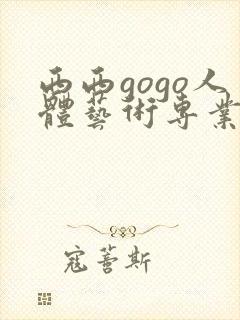 西西gogo人
體藝術专業
寇蒈斯